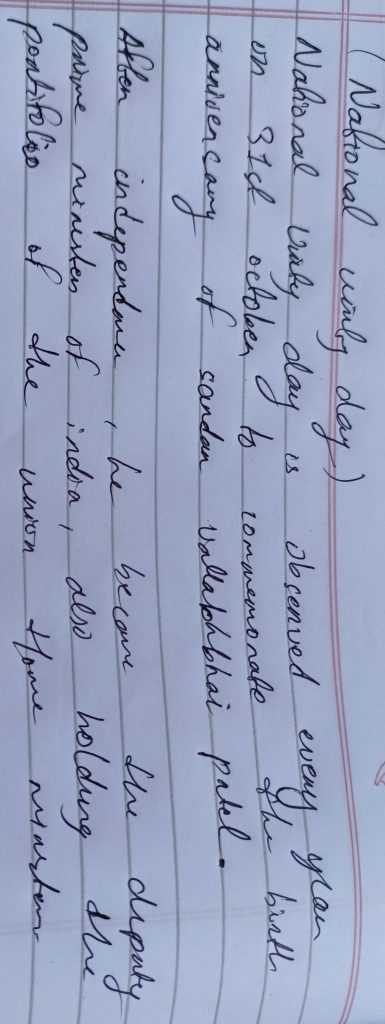 (National unity day)
National unity day is observed every year
on 31st october to commemorate the birth
anniversary of sardar vallabhbhai patel.
After independence, he became the diputy
prime minister of india, also holding the
portifolio of the union Home minister